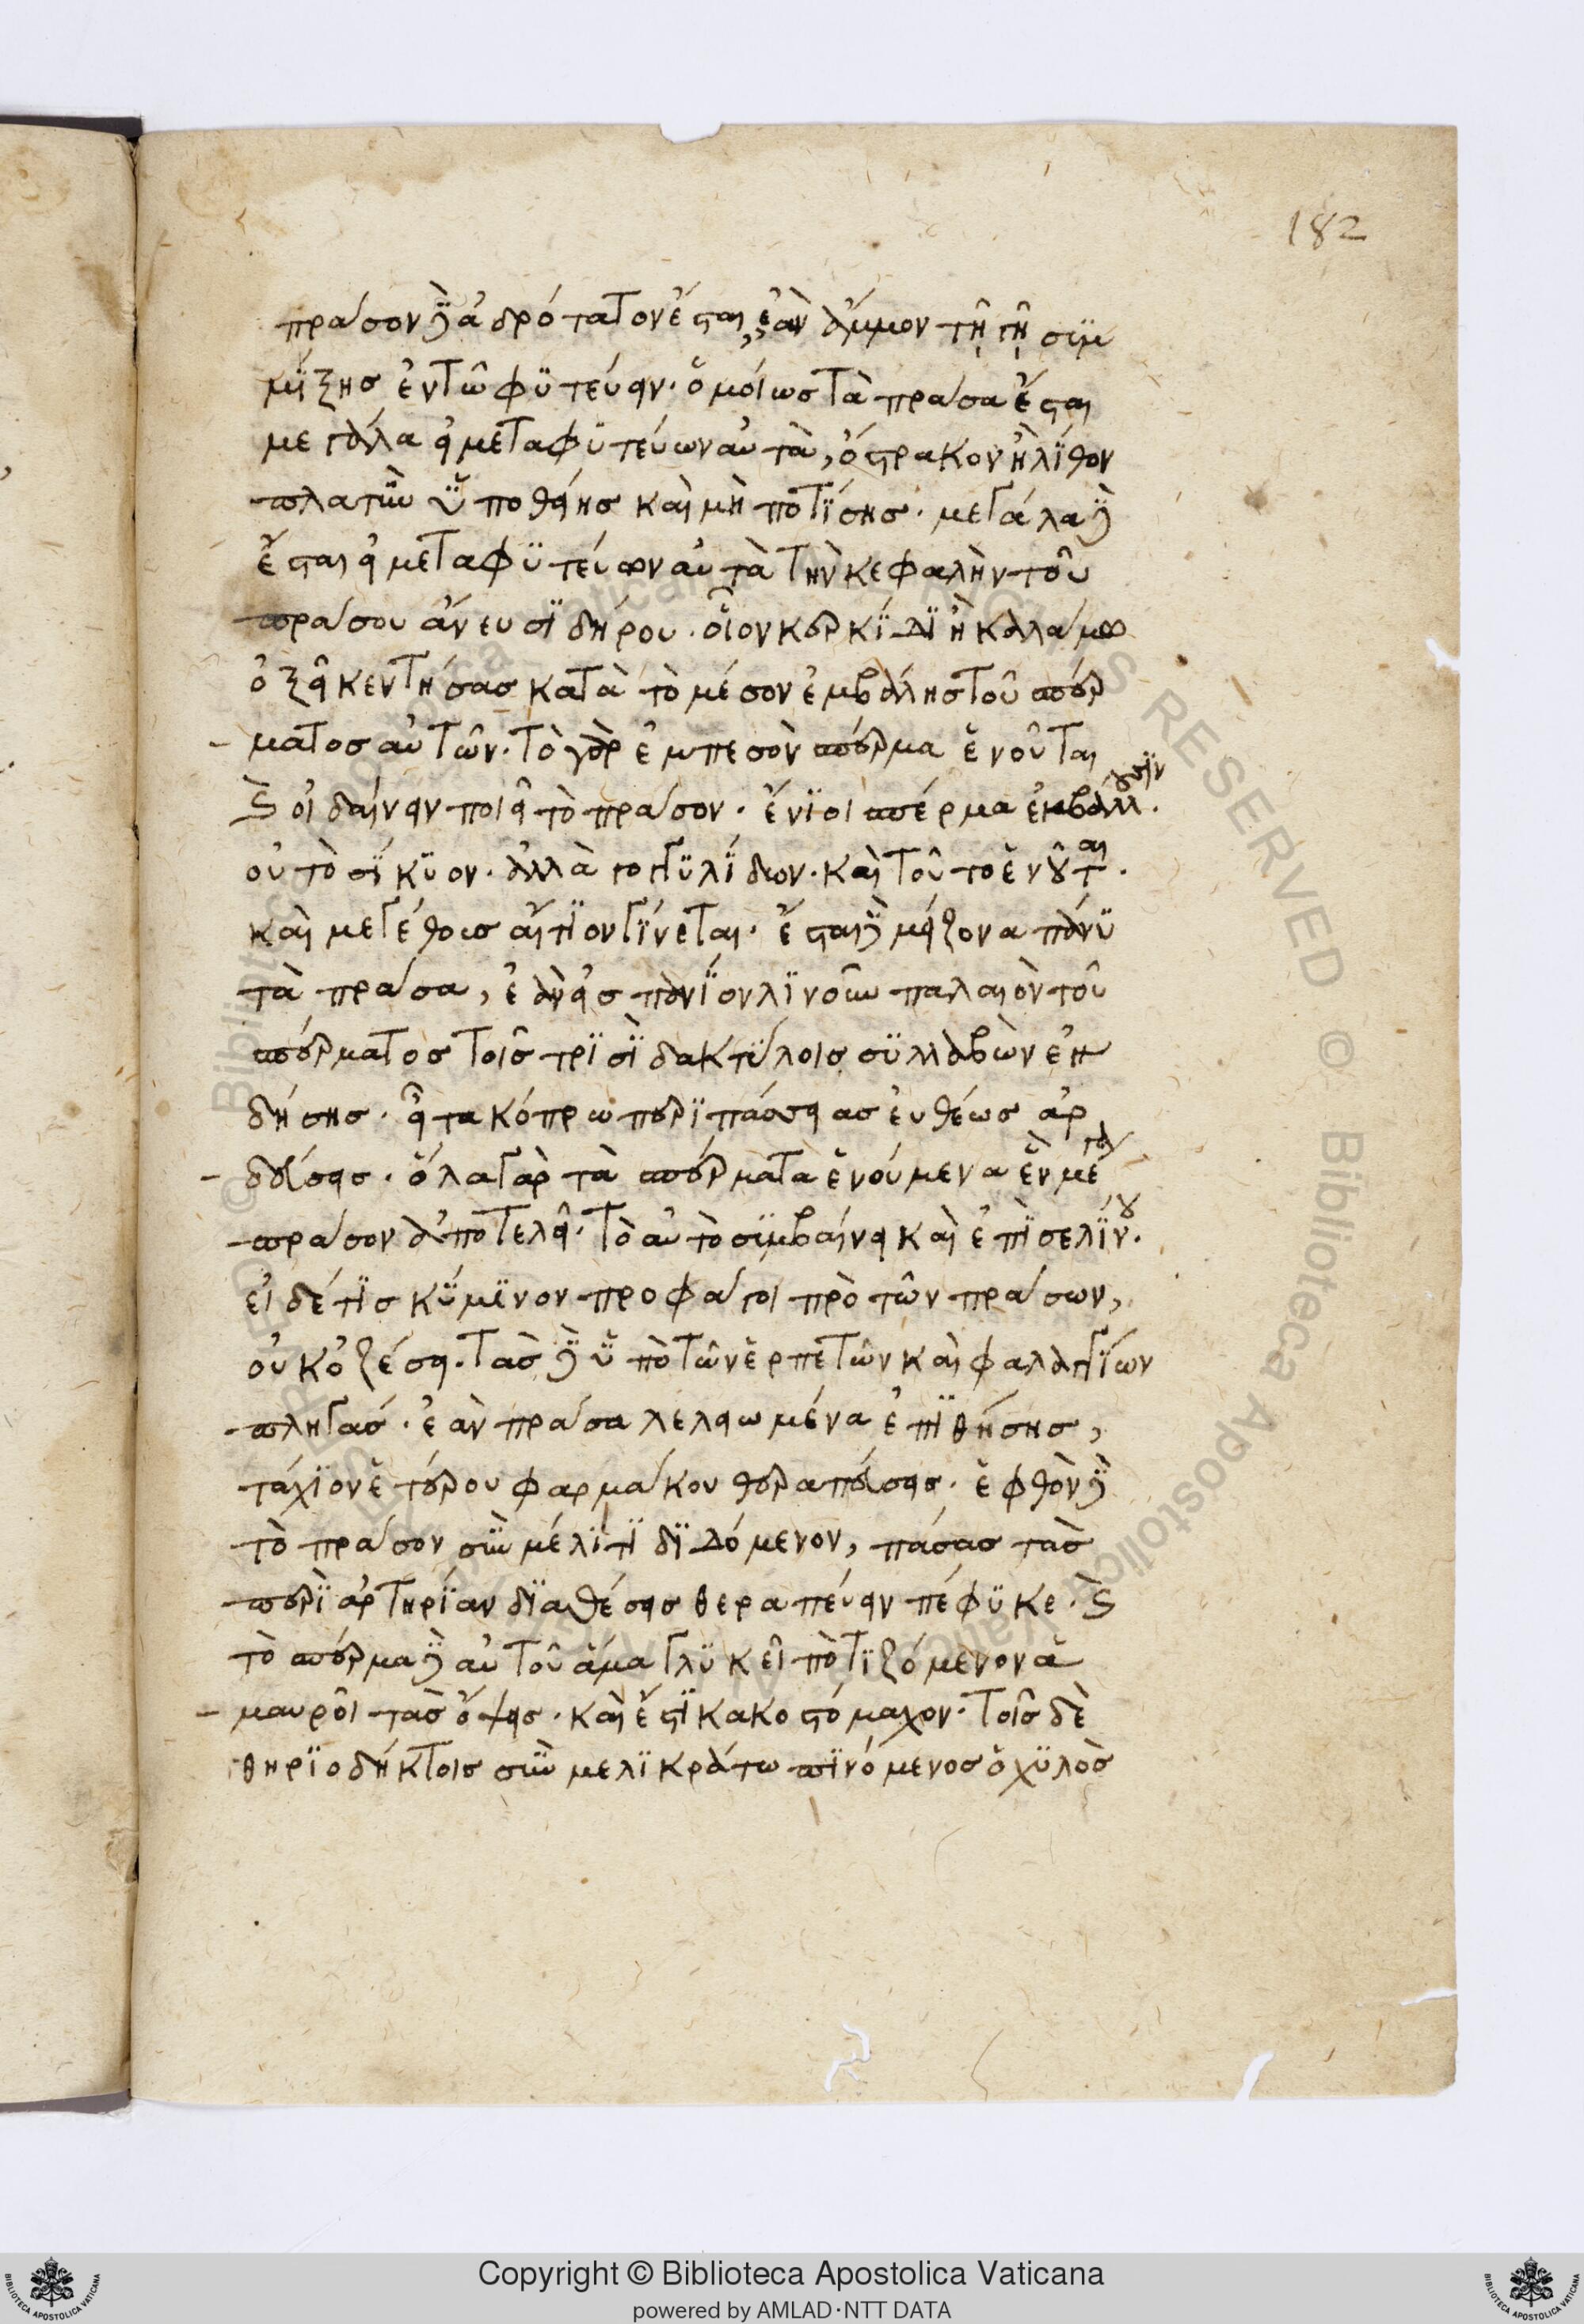 182
πράσον δὲ ἁδρότατον ἔσται, ἐὰν ἄμμον τῇ γῇ συμ
μίξης ἐν τῶ φυτεύειν. ὁμοίως τὰ πράσα ἔσται
μεγάλα εἰ μεταφυτεύων αὐτὰ, ὄστρακον ἢ λίθον
πλατὺν ὑποθείης καὶ μὴ ποτίσης. μεγάλα δὲ
ἔσται εἰ μεταφυτεύων αὐτὰ τὴν κεφαλὴν τοῦ
πράσου ἄνευ σιδήρου. οἷον κερκίδι ἢ καλάμω
ὀξεῖ κεντήσας κατὰ τὸ μέσον ἐμβάλης τοῦ σπέρ
ματος αὐτῶν. τὸ γὰρ ἐμπεσὸν σπέρμα ἑνοῦται
καὶ οἰδαίνειν ποιεῖ τὸ πράσον. ἔνιοι σπέρμα ἐμβάλλουσιν.
οὐ τὸ σίκυον. ἀλλὰ γογγυλίδων. καὶ τοῦτο ἑνοῦται.
καὶ μεγέθους αἴτιον γίνεται. ἔσται δὲ μείζονα πάνυ
τὰ πράσα, ἐὰν εἰς πανίον λινοῦν παλαιὸν τοῦ
σπέρματος τοῖς τρισὶ δακτύλοις συλλαβὼν ἐπι
δήσης. εἶτα κόπρω περιπάσσειας εὐθέως ἀρ
δεύσεις. ὅλα γὰρ τὰ σπέρματα ἑνούμενα ἓν μέγα
πράσον ἀποτελεῖ. τὸ αὐτὸ συμβαίνει καὶ ἐπὶ σελίνου.
εἰ δέ τις κύμινον προφάγοι πρὸ τῶν πράσων,
οὐκ ὀζέσει. τὰς δὲ ὑπὸ τῶν ἑρπετῶν καὶ φαλαγγίων
πληγάς. ἐὰν πράσα λελειωμένα ἐπιθήσης,
τάχιον ἑτέρου φαρμάκου θεραπεύσεις. ἑφθὸν δὲ
τὸ πράσον σὺν μέλιτι διδόμενον, πάσας τὰς
περὶ ἀρτηρίαν διαθέσεις θεραπεύειν πέφυκε. καὶ
τὸ σπέρμα δὲ αὐτοῦ ἅμα γλυκεῖ ποτιζόμενον ἀ
μαυροῖ τὰς ὄψεις. καὶ ἔστι κακοστόμαχον. τοῖς δὲ
θηριοδήκτοις σὺν μελικράτω πινόμενος ὁ χυλὸς
Copyright © Biblioteca Apostolica Vaticana
powered by AMLAD·NTT DATA